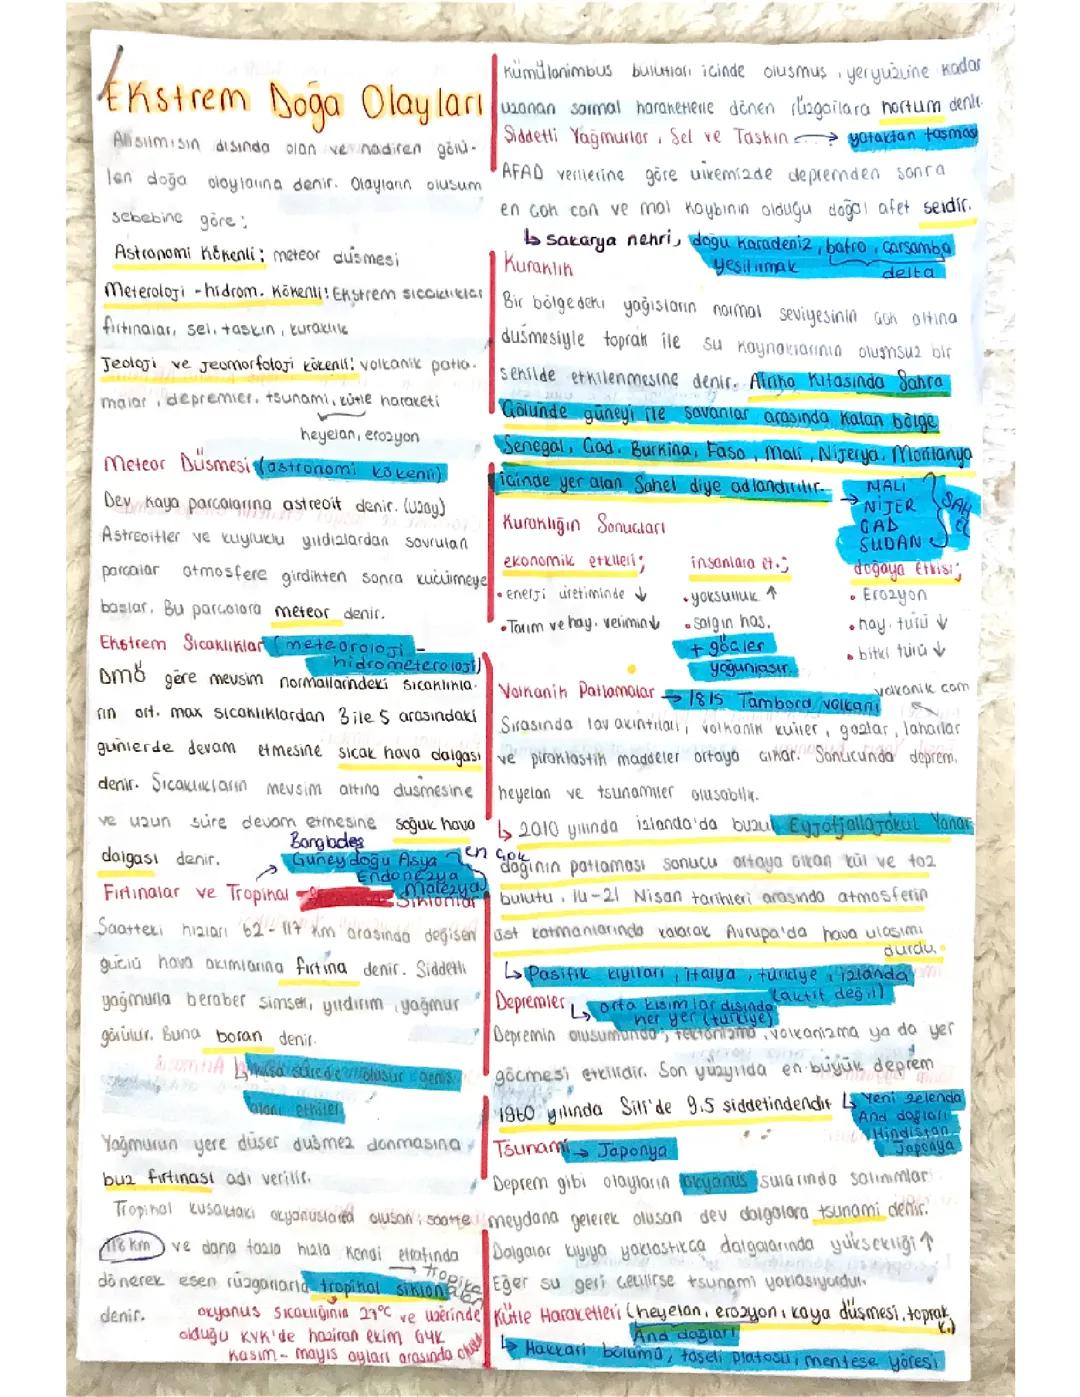 Ekstrem Doğa Olayları
Alışılmışın dışında olan ve nadiren görü-
len doğa olaylarına denir. Olayların oluşum
sebebine göre;
Astronomi Kökenli; meteor düşmesi
Meteroloji - hidrom. Kökenli: Ekstrem sıcaklıklar
fırtınalar, sel, taşkın, kuraklık
Jeoloji ve Jeomorfoloji kökenli: volkanik patla-
malar, depremler, tsunami, kütle haraketi
heyelan, erozyon
Meteor Düşmesi (astronomi kökenli)
Dev kaya parçalarına astreoit denir. (uzay)
Astreoitler ve kuyluklu yıldızlardan savrulan
parçalar atmosfere girdikten sonra küçülmeye
başlar. Bu parçalara meteor denir.
Ekstrem Sıcaklıklar (meteoroloji -
hidrometeroloji)
DMÖ göre mevsim normallarindeki sıcaklıkla-
rın ort. max sıcaklıklardan 3 ile 5 arasındaki
günlerde devam etmesine sıcak hava dalgası
denir. Sıcaklıkların mevsim altına düşmesine
ve uzun süre devam etmesine soğuk hava
dalgası denir.
Bangladeş
Güneydoğu Asya en çok
Endonezya
Malezya
Fırtınalar ve Tropikal Siklonlar
Saatteki hızları 62-117 km arasında değişen
güçlü hava akımlarına fırtına denir. Şiddetli
yağmurla beraber şimşek, yıldırım, yağmur
görülür. Buna boran denir.
kısa sürede oluşur geniş
alanı etkiler
Yağmurun yere düşer düşmez donmasına
buz fırtınası adı verilir.
Tropikal kuşaktaki okyanuslarda oluşan, saatte
118 km ve daha fazla hızla kendi etrafında
dönerek esen rüzgarlarla tropikal siklon
denir.
okyanus sıcaklığının 27°C ve üzerinde
olduğu KYK'de haziran ekim GYK
Kasım - mayıs ayları arasında
Kümülonimbus bulutları içinde oluşmuş, yeryüzüne kadar
uzanan sarmal haraketlerle dönen rüzgarlara hortum denir.
Şiddetli Yağmurlar, Sel ve Taşkın → yataktan taşması
AFAD verilerine göre ülkemizde depremden sonra
en çok can ve mal kaybının olduğu doğal afet seldir.
↳ sakarya nehri, doğu karadeniz, bafra, çarşamba
yeşilırmak delta
Kuraklık
Bir bölgedeki yağışların normal seviyesinin çok altına
düşmesiyle toprak ile su kaynaklarının olumsuz bir
şekilde etkilenmesine denir. Afrika Kıtasında Sahra
Çölünde güneyi ile savanlar arasında kalan bölge
Senegal, Çad, Burkina, Faso, Mali, Nijerya, Moritanya
içinde yer alan Sahel diye adlandırılır.
MALİ
→ NİJER
ÇAD
SUDAN
SAHEL
Kuraklığın Sonuçları
ekonomik etkileri; insanlara et.; doğaya etkisi;
• enerji üretiminde ↓ • yoksulluk ↑ • Erozyon
• Tarım ve hay. verimin ↓ • salgın has. • hay. türü ↓
+ göçler • bitki türü ↓
yoğunlaşır.
Volkanik Patlamalar → 1815 Tambora volkanı
volkanik cam
Sırasında lav akıntıları, volkanik küller, gazlar, laharlar
ve piroklastik maddeler ortaya çıkar. Sonucunda deprem,
heyelan ve tsunamiler oluşabilir.
↳ 2010 yılında izlanda'da buzul Eyjafjallajökul Yanar
dağının patlaması sonucu ortaya çıkan kül ve toz
bulutu, 14-21 Nisan tarihleri arasında atmosferin
üst katmanlarında kalarak Avrupa'da hava ulaşımı
durdu.
↳ Pasifik kıyıları, italya, türkiye, izlanda
(aktif değil)
Depremler ↳ orta kısımlar dışında
her yer (türkiye)
Depremin oluşumunda, tektonizma, volkanizma ya da yer
göçmesi etkilidir. Son yüzyılda en büyük deprem
1960 yılında Şili'de 9.5 şiddetindendir ↳ Yeni zelenda
And dağları
Hindistan
Japonya
Tsunami → Japonya
Deprem gibi olayların okyanus sularında salınımlar
meydana gelerek oluşan dev dalgalara tsunami denir.
Dalgalar kıyıya yaklaştıkça dalgalarında yüksekliği ↑
Eğer su geri çekilirse tsunami yaklaşıyordur.
Kütle Haraketleri (heyelan, erozyon, kaya düşmesi, toprak
k.)
And dağları
↳ Hakkari bölümü, taşeli platosu, menteşe yöresi